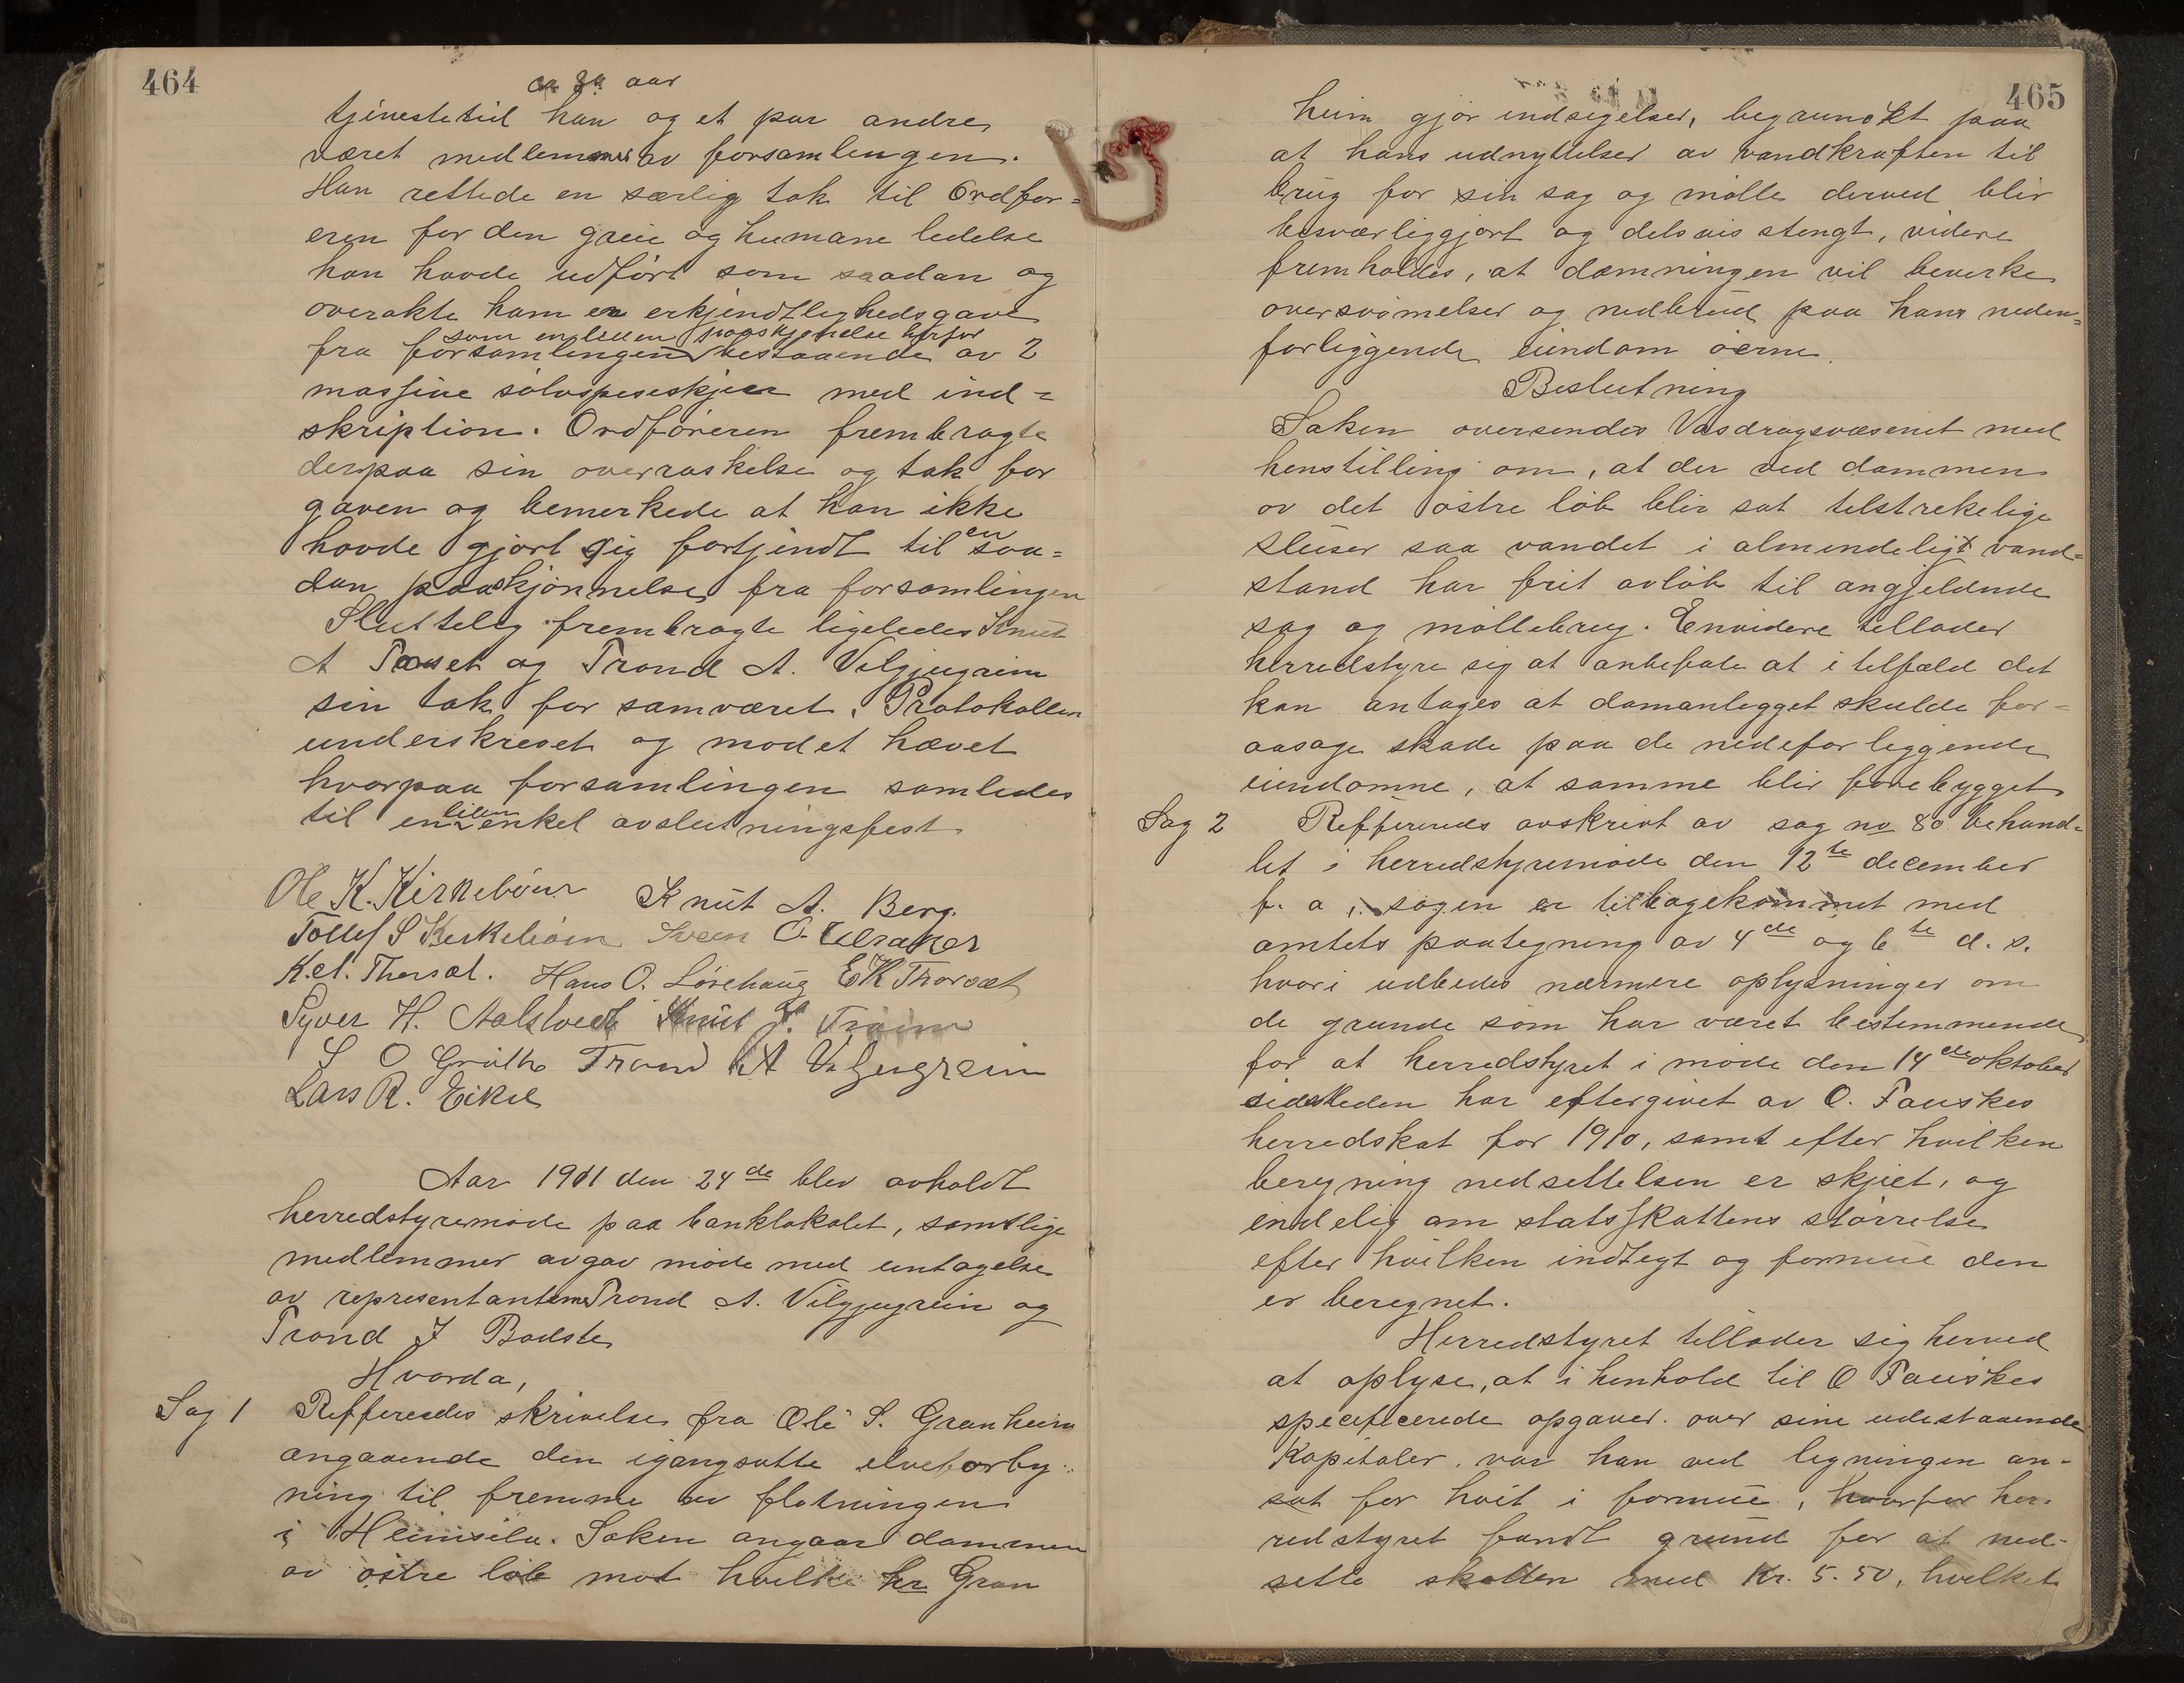 464
aar
tjenestetid han og et par andre
været medlemmer av forsamlingen.
Han rettede en særlig tak til Ordfør=
eren for den greie og humane ledelse
han havde udført som saadan og
overakte ham en erkjendtlighedsgave
som en liten paaskjønelse herfor
fra forsamlingen bestaaende av 2
massive sølvspiseskjeer med ind=
skription. Ordføreren frembragte
derpaa sin overraskelse og tak for
gaven og bemerkede at han ikke
havde gjort sig fortjendt til en saa=
dan paaskjønnelse fra forsamlingen
Sluttelig frembragte ligeledes Knut
A og Trond A. Velgjugreim
sin tak for samværet. Protokollen
underskrevet og mødet hævet
hvorpaa forsamlingen samledes
til en liten enkel avslutningsfest.
Ole K. Kirkebøen Knut A. Berg.
Tollef S Kirkebøen Svein O. Ulsaker
K.A. Thorset. Hans O. Løsehaug E K Thorset
Syver H. Aalstveit Knut J. Trøim
S O Grøthe Trond A Velgugreim
Lars R. Eikre
Aar 1911 den 24de blev avholdt
herredstyremøde paa banklokalet, samtlige
medlemmer avgav møde med untagelse
av representanterne Trond A. Velgjugreim og
Trond J Badste
Hvorda,
Sag 1 Reffereredes skrivelse fra Ole S. Granheim
angaaende den igangsatte elveforby=
ning til fremme av fløtningen
i Heimsila. Saken angaar dammen
av østre løb mot hvilke hr Gran
465
heim gjør indsigelser, begrundet paa
at hans udnyttelser av vandkraften til
brug for sin sag og mølle derved blir
besværliggjort og delsvis stengt, videre
fremholdes, at dæmningen vil bevirke
oversvømelser og nedbrud paa hans neden=
forliggende eiendom øerne.
Beslutning
Saken oversendes Vasdragsvæsenet med
henstilling om, at der ved dammen
av det østre løb blir sat tilstrekelige
sluser saa vandet i almindeligt vand=
stand har frit avløb til angjeldende
sag og møllebrug. Envidere tillader
herredstyre sig at anbefale at i tilfæld det
kan antages at damanlegget skulde for=
aasage skade paa de nedefor liggende
eiendomne, at samme blir forebygget
Sag 2 Reffereredes avskrivt av sag no 80 behand=
let i herredstyremøde den 12te december
f. a , sagen er tilbagekommet med
amtets paategning av 4de og 6te d. s.
hvori udbedes nærmere oplysninger om
de grunde som har været bestemmende
for at herredstyret i møde den 14de oktober
sidstleden har eftergivet av O. Fauskes
herredskat for 1910, samt efter hvilken
beregning nedsettelsen er skjiet, og
endelig om statsskattens størrelse
efter hvilken indtegt og formue den
er beregnet.
Herredstyret tillader sig herved
at oplyse, at i henhold til O Fauskes
specificerede opgaver over sine udestaaende
kapitaler, var han ved ligningen an=
sat for høit i formue, hvorfor her=
redstyret fandt grund for at ned=
sette skatten med Kr. 5.50, hvilket